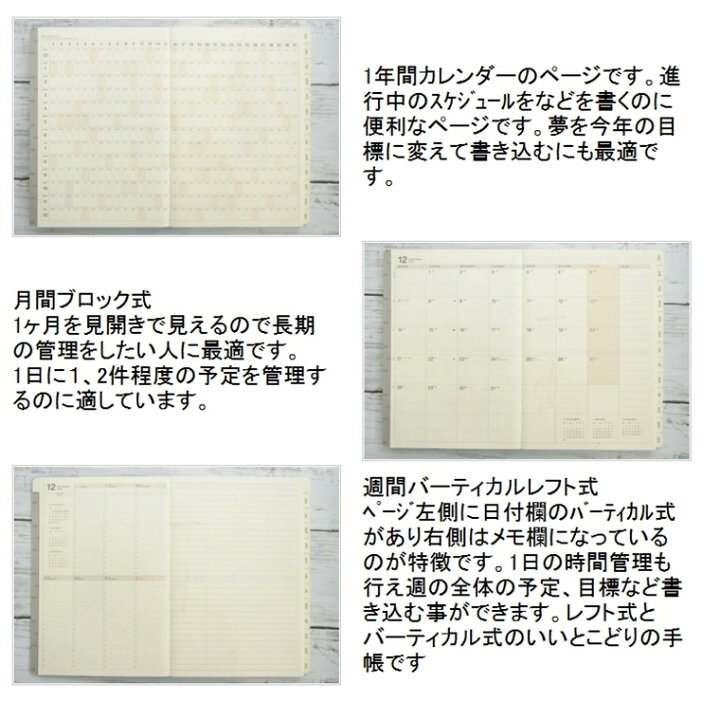 1年間カレンダーのページです。進
行中のｽｹｼﾞｭｰﾙをなどを書くのに
便利なページです。夢を今年の目
標に変えて書き込むにも最適で
す。
12
月間ブロック式
1ヶ月を見開きで見えるので長期
の管理をしたい人に最適です。
1日に1、2件程度の予定を管理す
るのに適しています。
12
週間バーティカルレフト式
ﾍﾟｰｼﾞ左側に日付欄のﾊﾞｰﾃｨｶﾙ式
があり右側はメモ欄になっている
のが特徴です。1日の時間管理も
行え週の全体の予定、目標など書
き込む事ができます。レフト式と
バーティカル式のいいとこどりの手
帳です